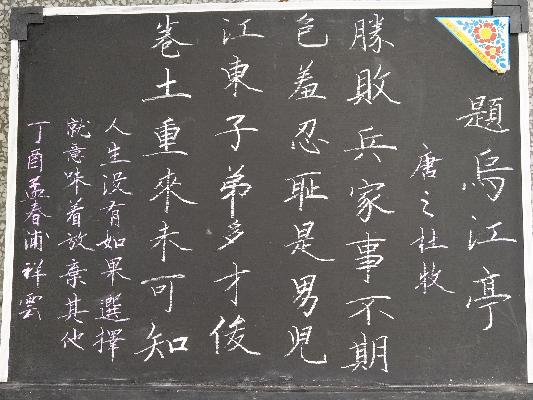 題烏江亭
唐之杜牧
勝敗兵家事不期
色羞忍耻是男児
江東子弟多才俊
卷土重來未可知
人生没有如果選擇
就意味着放棄其他
丁酉孟春浦祥雲